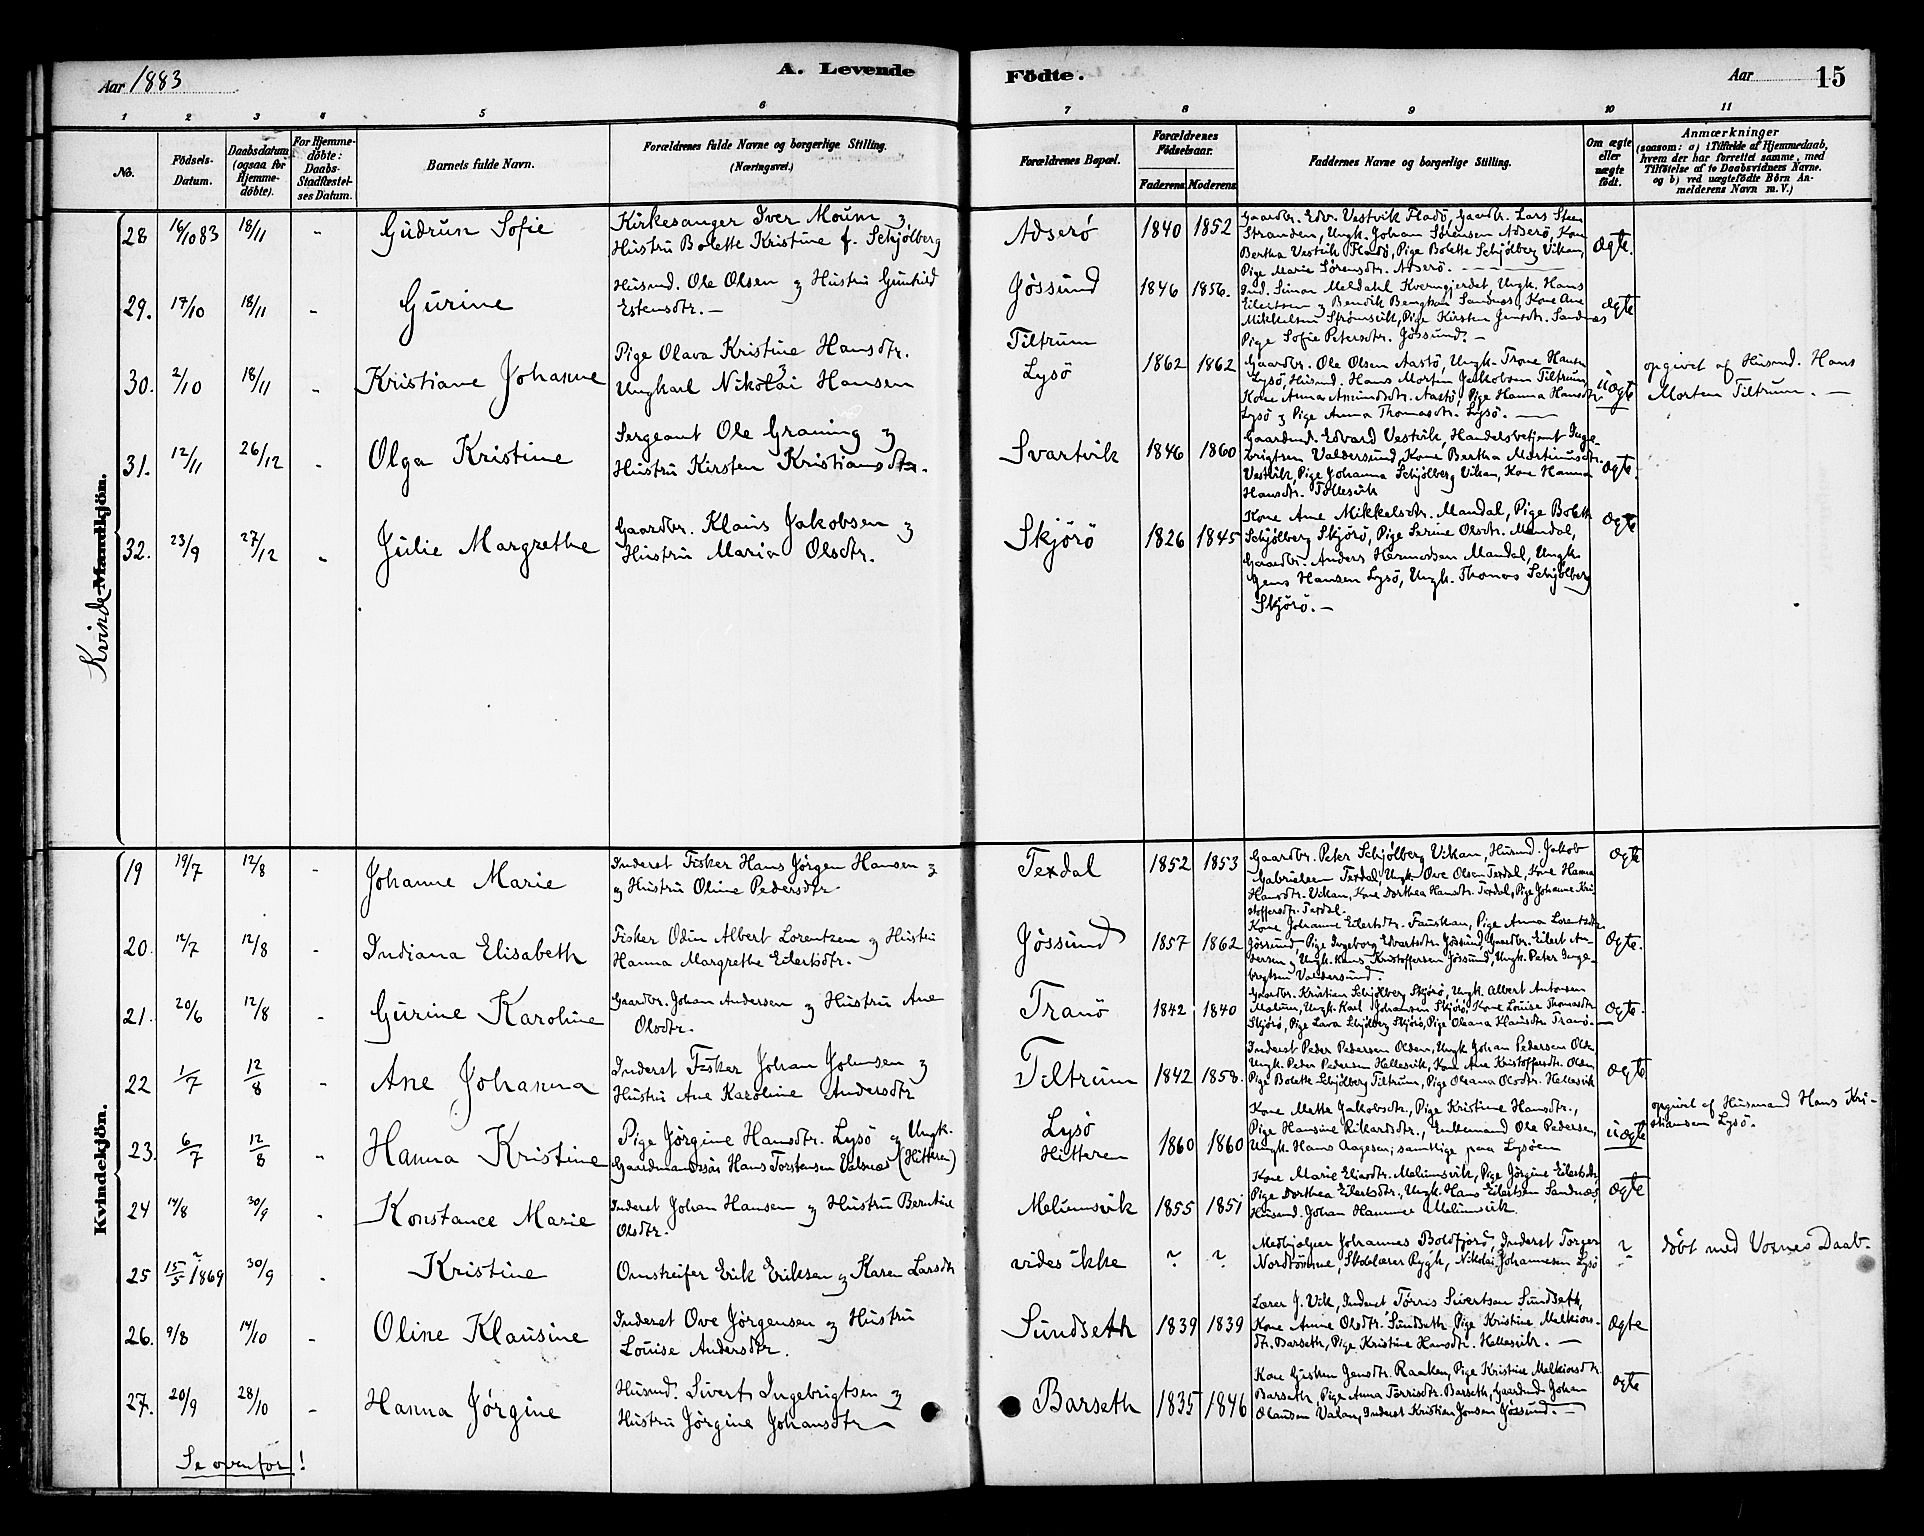 Aar 1883
A. Levende
Födte.
Aar
15
1 2 3 4 5 6 7 8 9 10 11
No.
Födsels-Datum.
Daabsdatum (ogsaa for Hjemme-döbte).
For Hjemme-döbte: Daabs-Stadfæstel-ses Datum.
Barnets fulde Navn.
Forældrenes fulde Navne og borgerlige Stilling. (Næringsvei.)
Forældrenes Bopæl.
Forældrenes Födselsaar.
Faderens Moderens
Faddernes Navne og borgerlige Stilling.
Om ægte eller uægte födt.
Anmærkninger
(saasom: a) i Tilfælde af Hjemmedaab, hvem der har forrettet samme, med Tilföielse af to Daabsvidners Navne. og b) ved uægtefödte Börn An-melderens Navn m. V.)
Kvinde Mandkjön.
28 16/10 83 18/11 - Gudrun Sofie
Kirkesanger Iver Moum og
Hustru Bolette Kristine f. Schjølberg
Adserö 1840 1852
Gaardbr. Edv. Vestvik Fladö, Gaardbr. Lars Steen
Stranden, Ungk. Johan Sørensen Adserö, Kone
Bertha Vestvik Fladö, Pige Bolette Schjølberg Vikan,
Pige Marie Sörensdtr. Adserö.
Ægte.
29. 17/10 18/11 - Gurine
Husmd. Ole Olsen og Hustru Gunhild
Estensdtr. —
Jössund 1846 1856.
Ind. Simon Meldahl Kverngjerdet, Ungk. Hans
Eilertsen og Bendik Bengtson Sandnes, Kone Ane
Mikkelsen Strömsvik, Pige Kirsten Jensdtr. Sandnes
Pige Sofie Petersdtr. Jössund. —
Ægte
30. 2/10 18/11 - Kristiane Johanne
Pige Olava Kristine Hansdtr.
og
Ungkarl Nikolai Hansen
Tiltrum
Lysö 1862 1862
Gaardbr. Ole Olsen Aastö, Ungk. Trone Hansen
Lysö, Husmd. Hans Morten Jakobsen Tiltrum,
Kone Anna Amundsdtr. Aastö, Pige Hanna Hansdtr.
Lysö og Pige Anna Thomasdtr. Lysö. —
Uægte
opgivet af Husmd. Hans
Morten Tiltrum. —
31. 12/11 26/12 - Olga Kristine
Sergeant Ole Graning og
Hustru Kirsten Kristiansdtr.
Svartvik 1846 1860
Gaardmd. Edvard Vestvik, Handelsbetjent Inge-
brigtsen Valdersund, Kone Bertha Martinusdtr.
Vestvik, Pige Johanna Schjølberg Vikan, Kone Hanna
Hansdtr. Tollesvik
Ægte.
32. 23/9 27/12 - Julie Margrethe
Gaardbr. Klaus Jakobsen og
Hustru Maria Olsdtr.
Skjörö 1826 1845
Kone Ane Mikkelsdtr. Mandal, Pige Boleth
Schjølberg Skjörö, Pige Serine Olsdtr. Mandal,
Gaardbr. Anders Hermodsen Mandal, Ungk.
Jens Hansen Lysö, Ungk. Thomas Schjølberg
Skjörö. —
Ægte
Kvindekjön.
19 19/7 12/8 - Johanne Marie
Inderst Fisker Hans Jörgen Hansen og
og Hustru Oline Pedersdtr.
Texdal 1852 1853
Gaardbr. Peter Schjølberg Vikan, Husmd. Jakob
Gabrielsen Texdal, Ungk. Ove Olsen Texdal, Kone Hanna
Hansdtr. Vikan, Kone Dorthea Hansdtr. Texdal, Pige Johanne Kri-
stoffersdtr. Texdal.
Ægte
20. 12/7 12/8 - Indiana Elisabeth
Fisker Odin Albert Lorentzen og Hustru
Hanna Margrethe Eilertsdtr.
Jössund 1857 1862
Kone Johanne Eilertsdtr. Fauskan, Pige Anna Lorentzdtr.
Jössund, Pige Ingeborg Edvartsdtr. Jössund, Gaardbr. Eilert An-
dersen og Ungk. Hans Kristoffersen Jössund, Ungk. Peter Inge-
brigtsen Valdersund.
Ægte.
21. 20/6 12/8 - Gurine Karoline
Gaardbr. Johan Andersen og Hustru Ane
Olsdtr.
Tranö 1842 1840
Gaardbr. Kristian Schjølberg Skjörö, Ungk. Albert Antonsen
Melum, Ungk. Karl Johansen Skjörö, Kone Louise Thomasdtr.
Skjörö, Pige Lava Schjølberg Skjörö, Pige Oleana Klausdtr. Tranö.—
Ægte.
22 1/7 12/8 - Ane Johanna
Inderst Fisker Johan Johnsen og
Hustru Ane Karoline Andersdtr
Tiltrum 1842 1858.
Inderst Peder Pedersen Olden, Ungk. Johan Pedersen Olden
Ungk. Peder Pedersen Hellesvik, Kone Ane Kristoffersdtr. Olden
Pige Bolette Schjølberg Tiltrum, Pige Oleana Olsdtr. Hellesvik
Ægte
23. 6/7 12/8 - Hanna Kristine
Pige Jörgine Hansdtr. Lysö og Ungk.
Gaardmandssön Hans Torstensen Valsnes (Hitteren)
Lysö
Hitteren 1860 1860
Kone Metta Jakobsdtr., Pige Kristine Hansdtr.,
Pige Hansine Rikartsdtr., Enkemand Ole Pedersen,
Ungk. Hans Aagesen; samtlige paa Lysöen
Uægte
opgivet af Husmand Hans Kri-
stiansen Lysö.
24 14/8 30/9 - Konstance Marie
Inderst Johan Hansen og Hustru Berntine
Olsdtr.
Melumsvik 1855 1851
Kone Marie Eliasdtr. Melumsvik, Pige Jörgine Eilertsdtr,
Pige Dorthea Eilertsdtr., Ungk. Hans Eilertsen Sandnes,
Husmd. Johan Hammer Melumsvik.
Ægte
25 15/5 1869 30/9 - Kristine
Omstreifer Erik Eriksen og Karen Larsdtr
vides ikke ? ?
Medhjælper Johannes Boldfjorö, Inderst Torger
Nordtömme, Skolelærer Rygh, Nikolai Johannesen Lysö
?
döbt med Voxnes Daab.
26. 9/8 14/10 - Oline Klausine
Inderst Ove Jörgensen og Hustru
Louise Andersdtr.
Sundseth 1839 1839
Lærer J. Vik, Inderst Törris Sivertsen Sundseth,
Kone Anne Olsdtr. Sundseth, Pige Kristine Melkiors-
dtr. Barseth, Pige Kristine Hansdtr. Hellesvik. —
Ægte
27. 20/9 28/10 - Hanna Jörgine
Husmd. Sivert Ingebrigtsen og
Hustru Jörgine Johansdtr
Barseth 1835 1846
Kone Gjertru Jensdtr. Raaken, Pige Kristine Melkiorsdtr.
Barseth, Pige Anna Törrisdtr. Barseth, Gaardmd. Johan
Olausen Valan, Inderst Kristian Jonsen Jössund. —
Ægte
Se ovenfor!